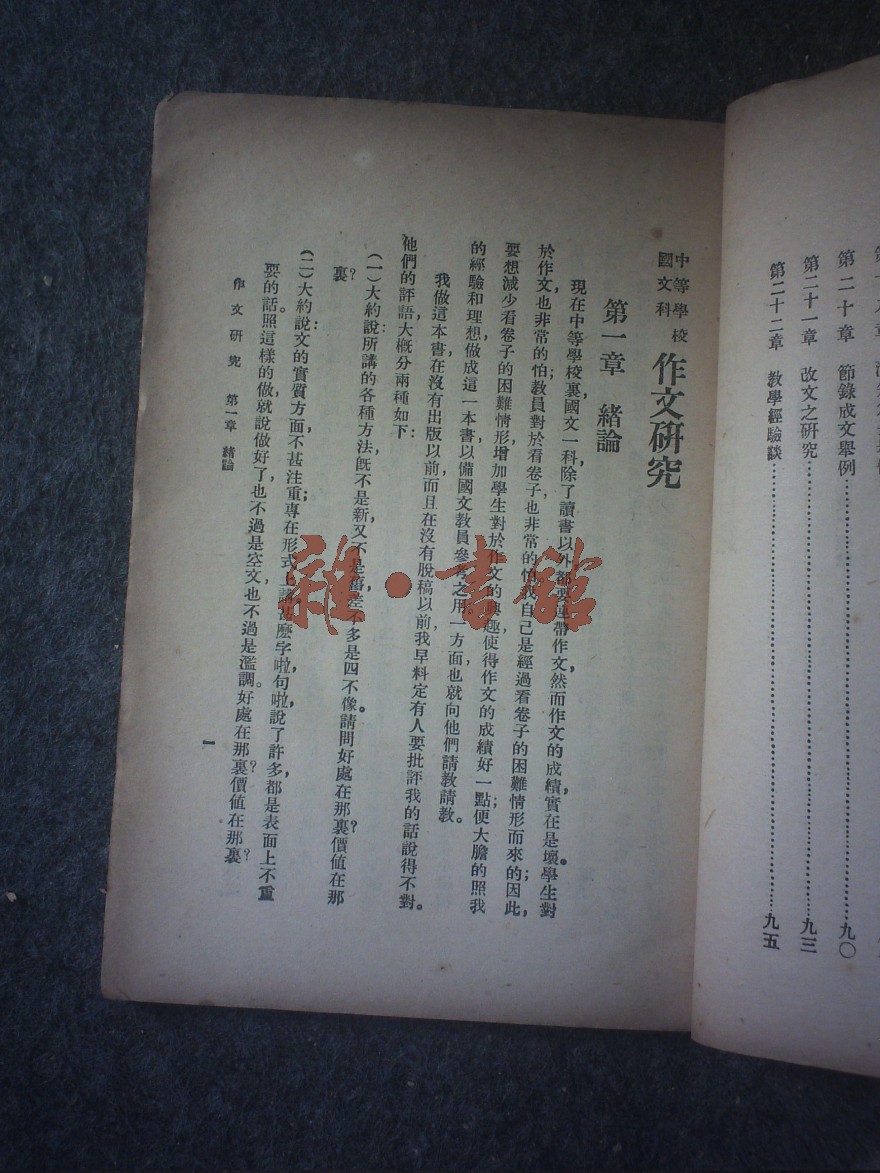 第二十章 節錄成文舉例……九〇
第二十一章 改文之研究……九三
第二十二章 教學經驗談……九五
中等學校
國文科
作文研究
第一章 緒論
現在中等學校裏國文一科除了讀書以外都要連帶作文然而作文的成績實在是壞。學生對
於作文，也非常的怕教員對於看卷子也非常的怕我自己是經過看卷子的困難情形而來的；因此，
要想減少看卷子的困難情形，增加學生對於作文的興趣使得作文的成績好一點；便大膽的照我
的經驗和理想做成這一本書以備國文教員參考之用一方面也就向他們請教請教。
我做這本書在沒有出版以前而且在沒有脫稿以前，我早料定有人要批評我的話說得不對。
他們的評語大概分兩種如下：
（一）大約說所講的各種方法，旣不是新，又不是舊，差不多是四不像。請問好處在那裏？價值在那
裏？
（二）大約說：文的實質方面，不甚注重；專在形式上講甚麽字啦句啦，說了許多，都是表面上不重
要的話。照這樣的做，就說做好了，也不過是空文，也不過是濫調。好處在那裏？價值在那裏？
作文研究 第一章 緒論
一
雜·書館